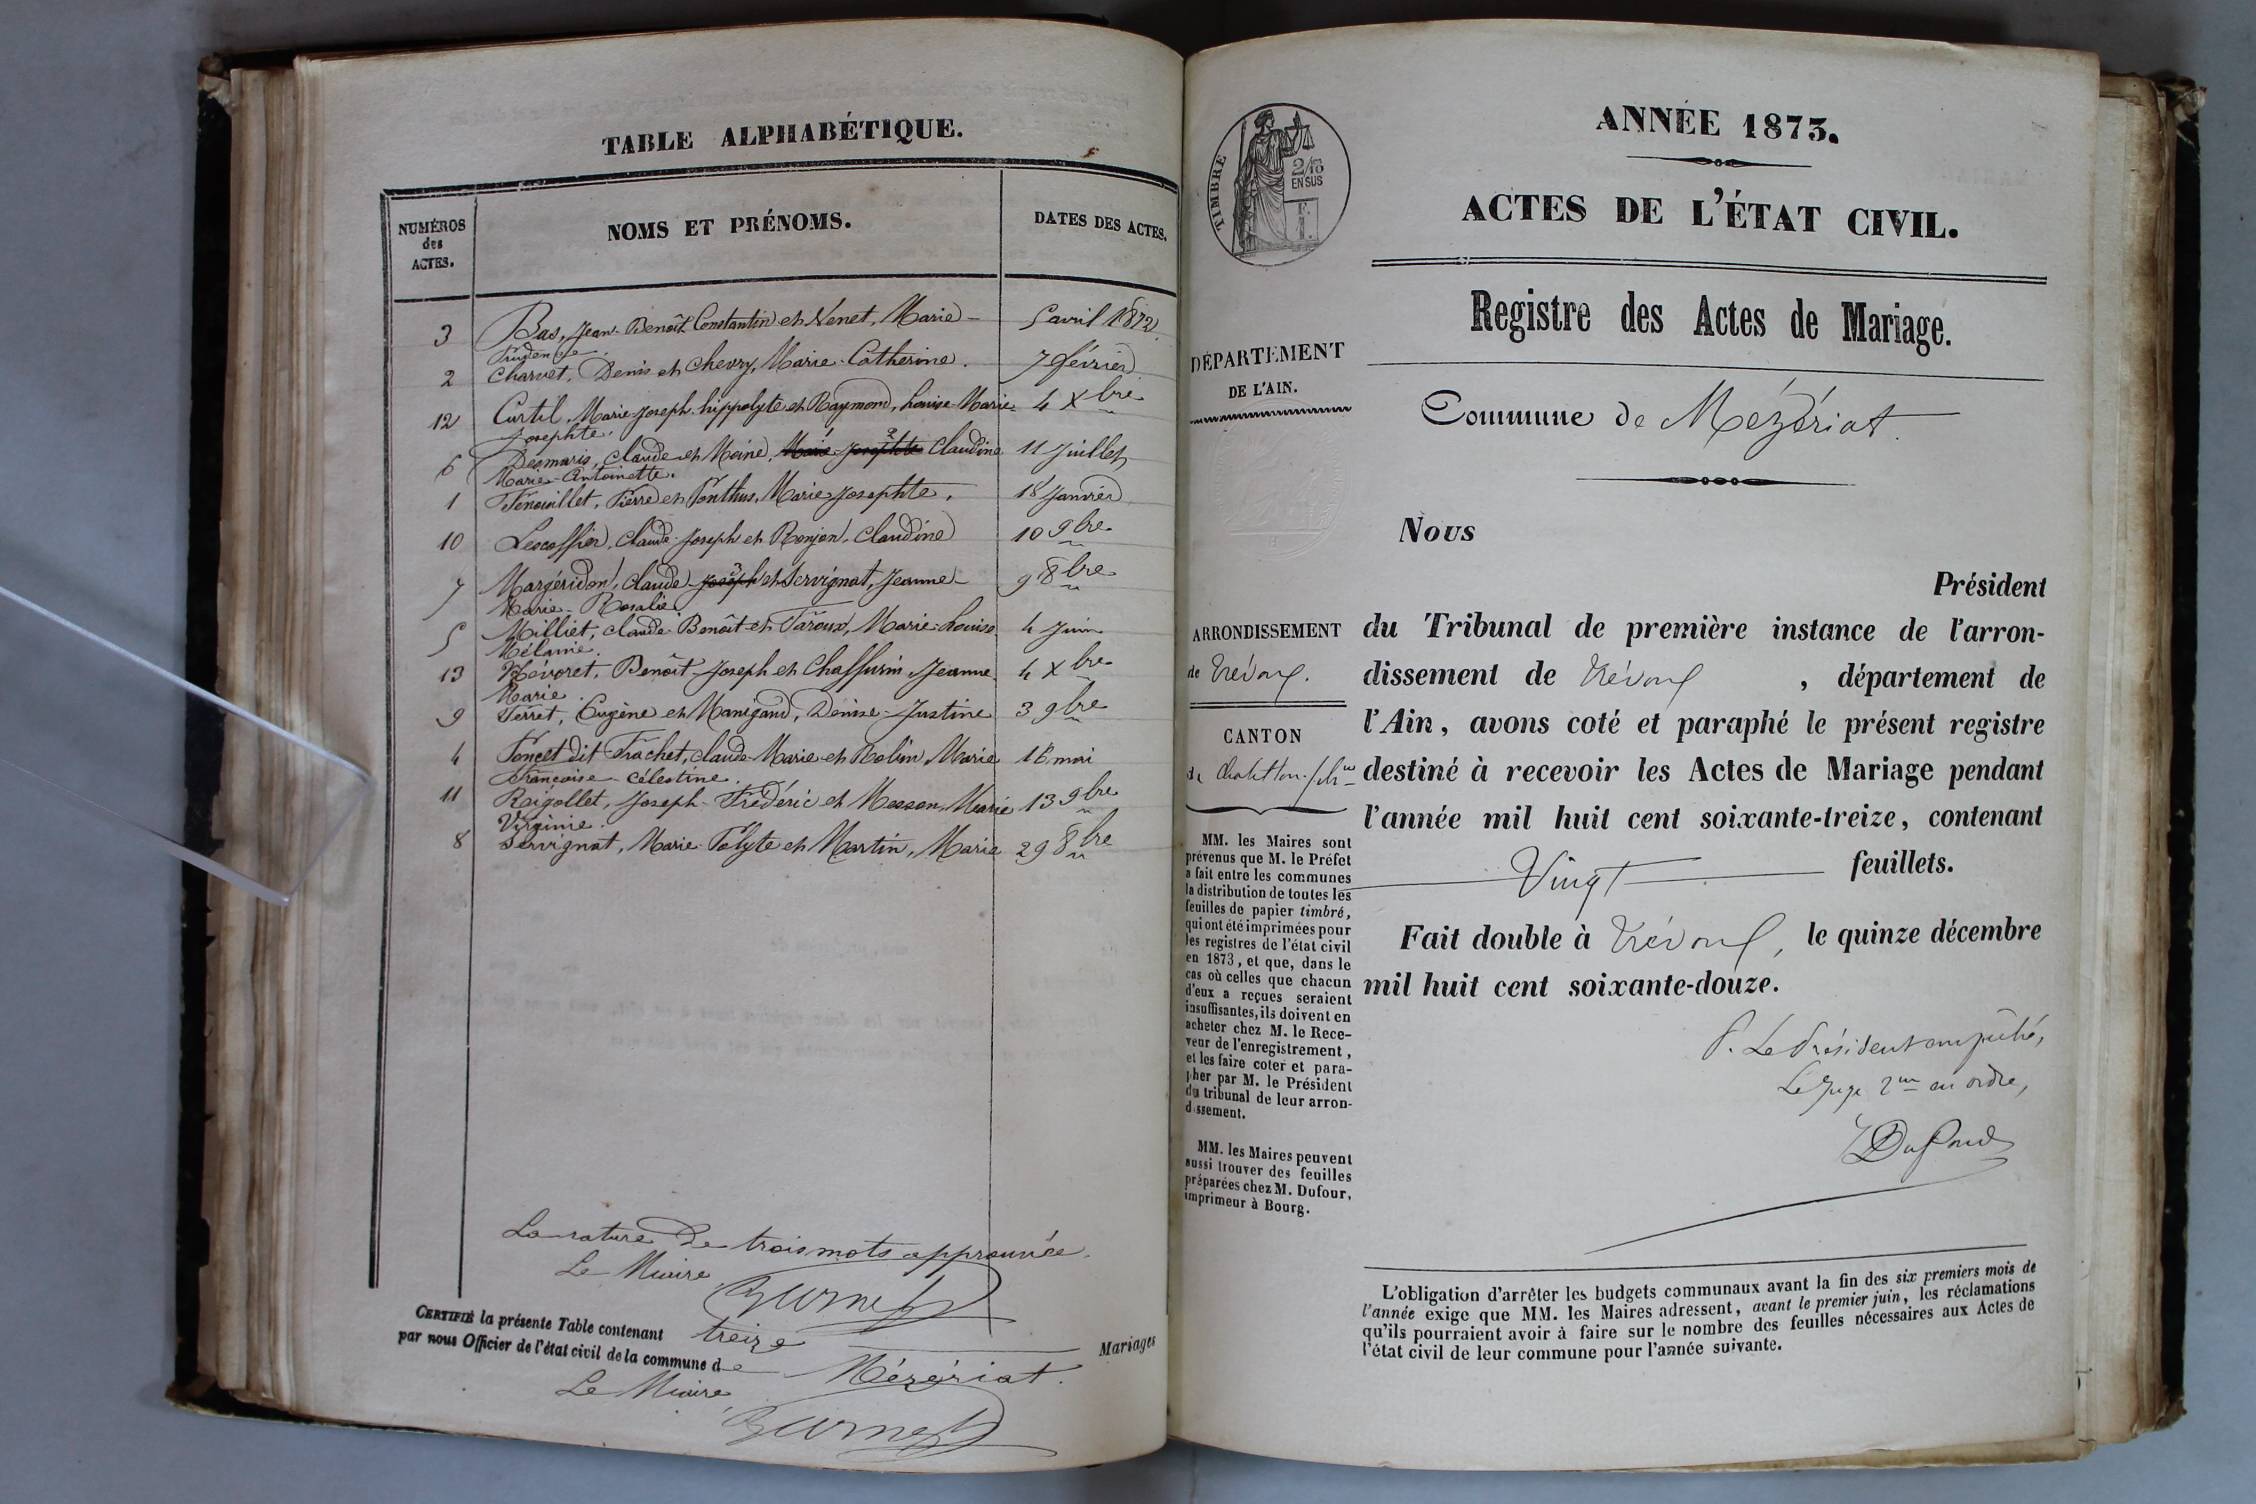 TABLE ALPHABÉTIQUE.
NUMÉROS
des
ACTES.
NOMS ET PRÉNOMS.
DATES DES ACTES.
3 Bas, Jean-Benoît Constantin et Nenet, Marie- 5 avril 1872
Prudence.
2 Charvet, Denis et Chevry, Marie-Catherine. 7 février
12 Curtil, Marie-Joseph-hippolyte et Raymond, Louise Marie 4 Xbre
Josephte.
6 Desmaris, claude et Moine, Marie Josephte Claudine 11 Juillet
Marie-Antoinette.
1 Fenouillet, Pierre et Ponthus, Marie Josephte. 18 Janvier
10 Lescoffier, Claude-Joseph et Ronjon, Claudine 10 9bre
7 Margéridon, claude-Joseph et Servignat, Jeanne- 9 8bre
Marie-Rosalie
5 Milliet, claude-Benoît et Taroux, Marie-Louise 4 Juin
Mélanie.
13 Névoret, Benoît-Joseph et Chaffurin, Jeanne 4 Xbre
Marie.
9 Perret, Eugène et Manigand, Denise-Justine 3 9bre
4 Poncet dit Trachet, claude-Marie et Robin, Marie mai
Françoise-célestine.
11 Raigollet, Joseph-Frédéric et Messon, Marie 13 9bre
Virginie.
8 Servignat, Marie-Polyte et Martin, Marie 29 8bre
La rature de trois mots approuvée.
Le Maire
CERTIFIÉ la présente Table contenant treize Mariages
par nous Officier de l'état civil de la commune de Mézériat.
Le Maire
TIMBRE
2/10
EN SUS
ANNÉE 1873.
ACTES DE L'ÉTAT CIVIL.
Registre des Actes de Mariage.
DÉPARTEMENT
DE L'AIN.
Commune de Mézériat.
Nous
Président
du Tribunal de première instance de l'arron-
dissement de Trévoux, département de
l'Ain, avons coté et paraphé le présent registre
destiné à recevoir les Actes de Mariage pendant
l'année mil huit cent soixante-treize, contenant
Vingt feuillets.
Fait double à Trévoux, le quinze décembre
mil huit cent soixante-douze.
P. Le Président empêché,
Le Juge 2me en ordre,
ARRONDISSEMENT
de Trévoux.
CANTON
de Chatillon-
MM. les Maires sont
prévenus que M. le Préfet
a fait entre les communes
la distribution de toutes les
feuilles de papier timbré,
qui ont été imprimées pour
les registres de l'état civil
en 1873, et que, dans le
cas où celles que chacun
d'eux a reçues seraient
insuffisantes, ils doivent en
acheter chez M. le Rece-
veur de l'enregistrement,
et les faire coter et para-
pher par M. le Président
du tribunal de leur arron-
dissement.
MM. les Maires peuvent
aussi trouver des feuilles
préparées chez M. Dufour,
imprimeur à Bourg.
L'obligation d'arrêter les budgets communaux avant la fin des six premiers mois de
l'année exige que MM. les Maires adressent, avant le premier juin, les réclamations
qu'ils pourraient avoir à faire sur le nombre des feuilles nécessaires aux Actes de
l'état civil de leur commune pour l'année suivante.